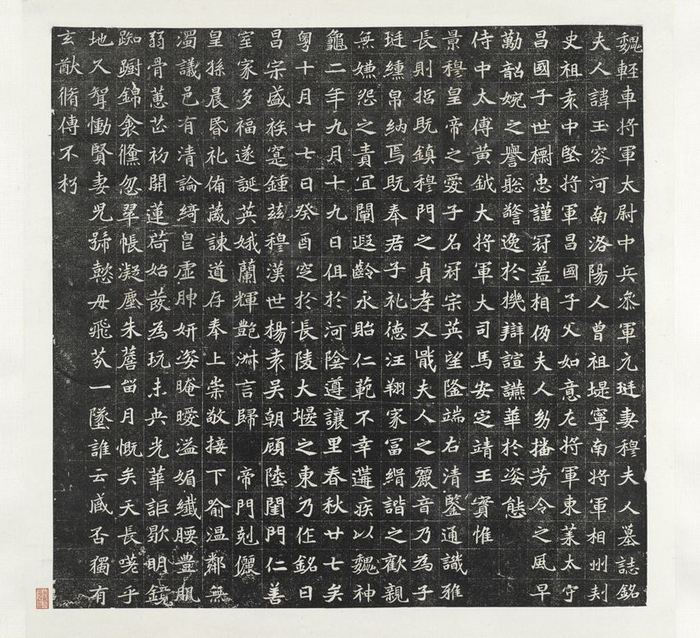 魏輕車將軍太尉中兵參軍元珽妻穆夫人墓誌銘
夫人諱玉容河南洛陽人曾祖堤寧南將軍相州刺
史祖袁中堅將軍昌國子父如意左將軍東萊太守
昌國子世櫥忠謹冠蓋相仍夫人幼播芳令之風早
勤韶婉之譽聡警逸於機辯諠讌華於姿態
侍中太傅黃鉞大將軍大司馬安定靖王寳惟
景穆皇帝之愛子名冠宗英望隆端右清鑒通識雅
長則哲既鎮穆門之貞孝又戢夫人之麗音乃為子
珽纁帛納焉既奉君子礼德汪翔家冨緝諧之歡親
無嫌怨之責宜闡遐齡永貽仁範不幸遘疾以魏神
龜二年九月十九日俎於河陰遵讓里春秋廿七矣
粵十月廿七日癸酉窆於長陵大堰之東乃作銘曰
昌宗盛族寔鍾茲穆漢世楊袁吳朝顧陸閨門仁善
室家多福遂誕英娥蘭輝艷淋言歸 帝門剋儷
皇孫晨昏礼俻葴諫道存奉上崇敬接下喻温鄰無
濁議邑有清論綺皃虛肿妍姿晻曖溢媚纖腰豐肌
弱骨蕙芷初開蓮荷始蔆為玩未央光華詎歇明鏡
踟躕錦衾儵忽翠帳凝塵朱蓎留月慨矣天長嗟乎
地久聟慟賢妻皃號懿母飛芬一墜誰云臧否獨有
玄猷脩傳不朽